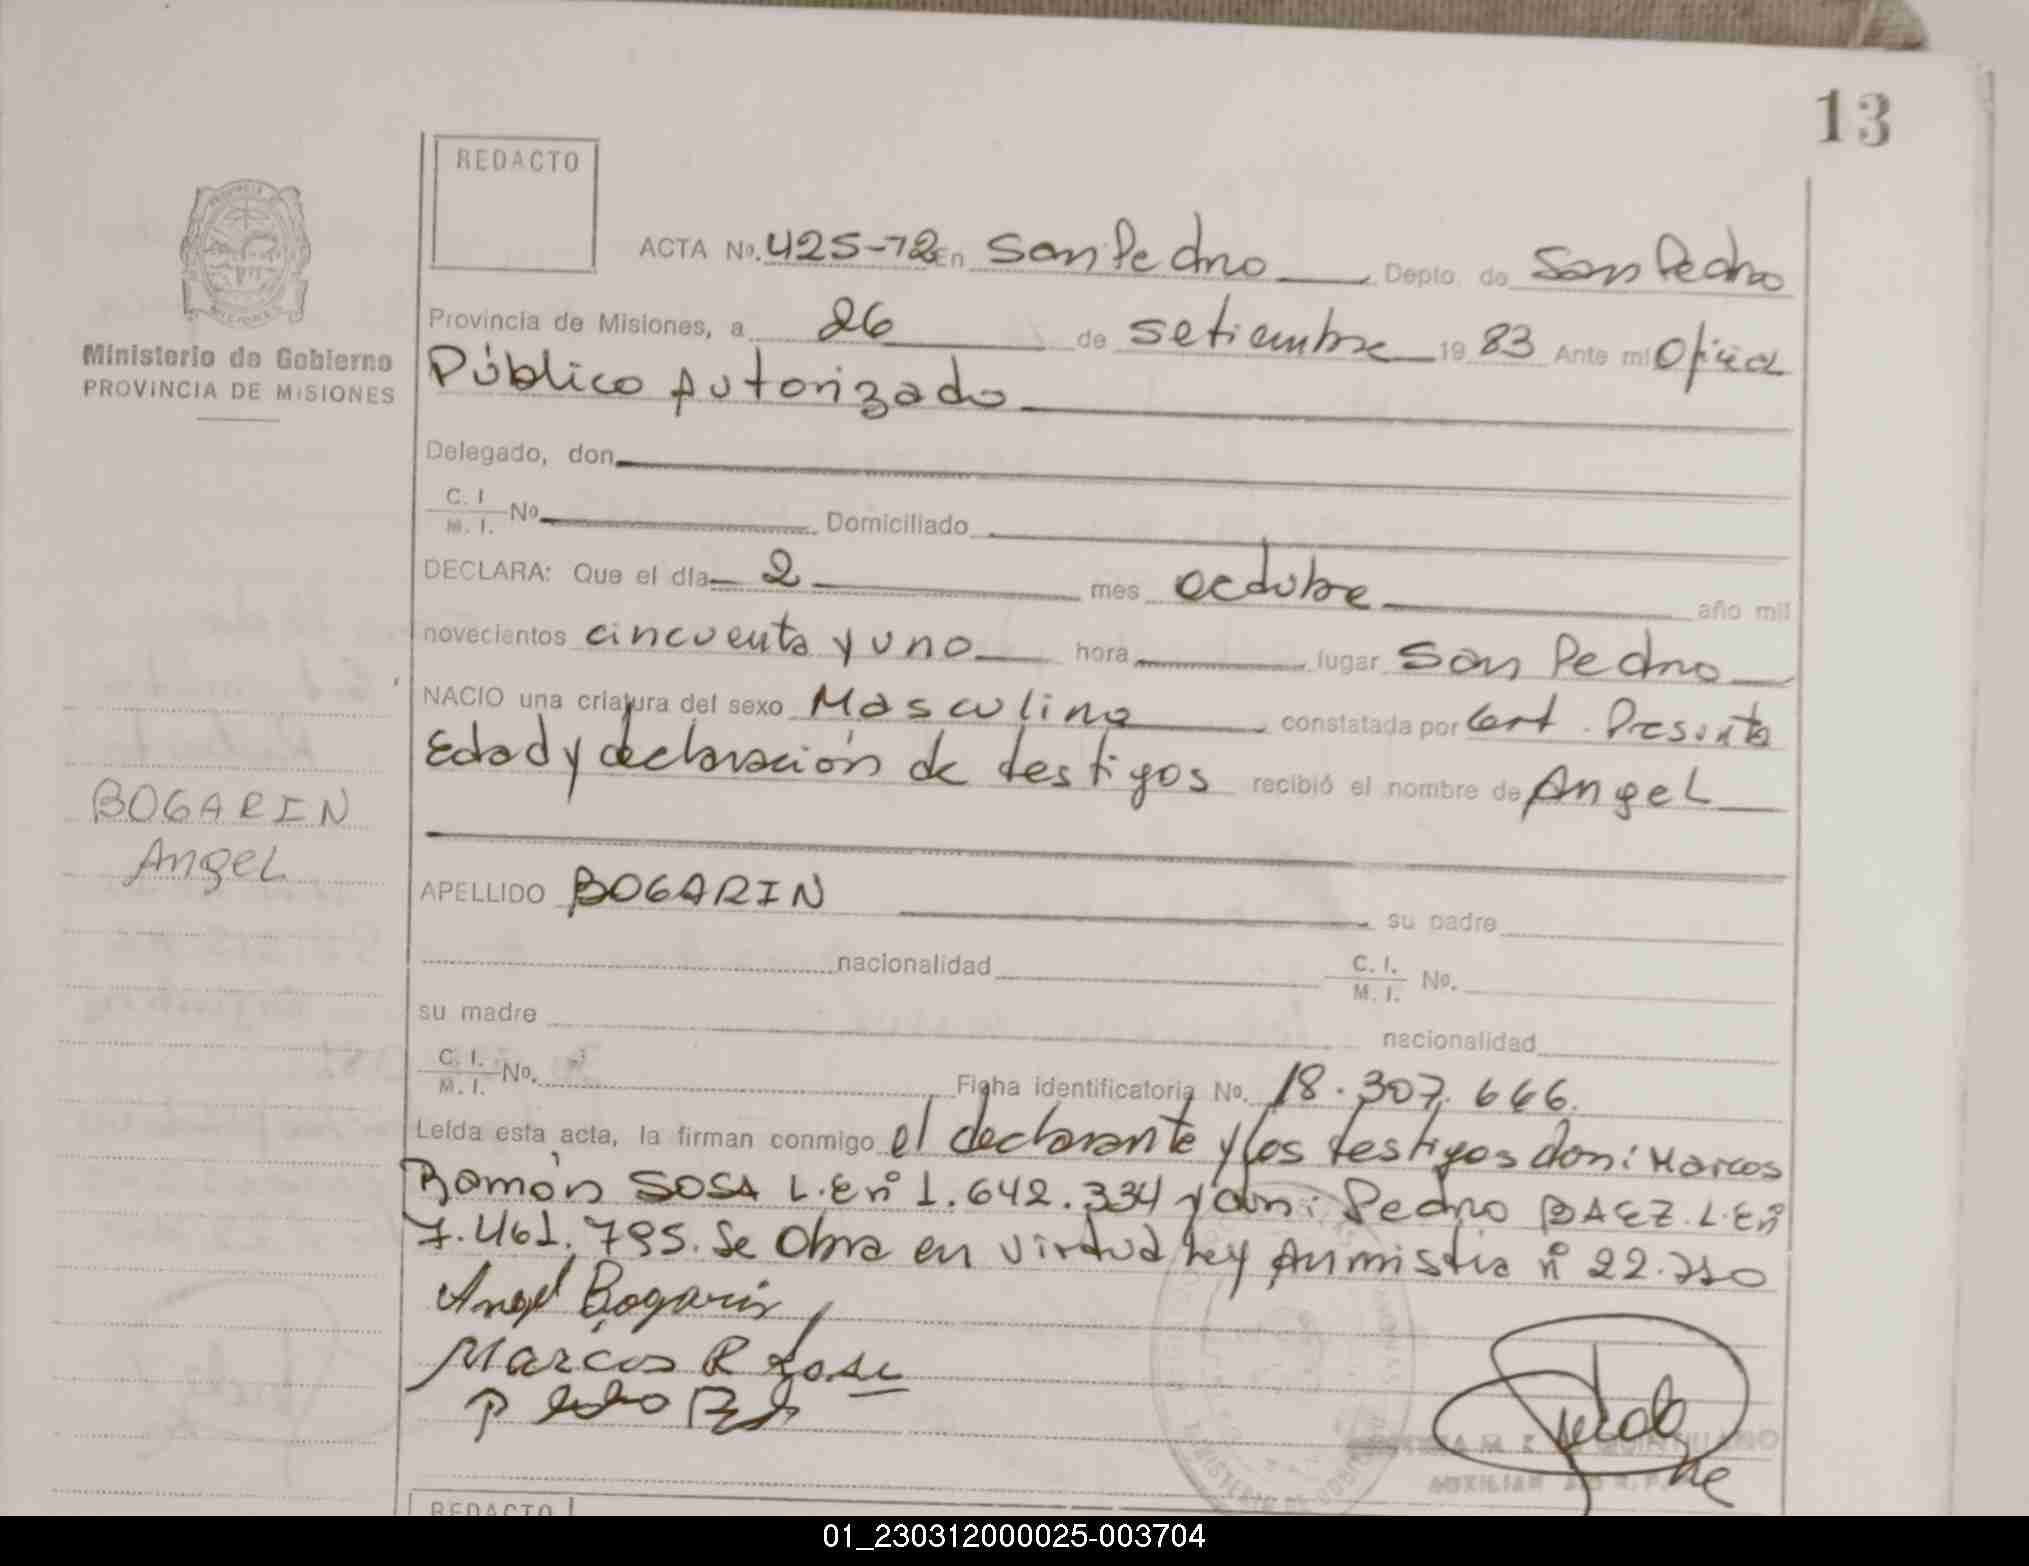 13
REDACTO
ACTA No. 425-72 En San Pedro Depto. de San Pedro
Provincia de Misiones, a 26 de setiembre 19 83 Ante mi Oficial
Público Autorizado
Ministerio de Gobierno
PROVINCIA DE MISIONES
Delegado, don
C. I. / M. I. No Domiciliado
DECLARA: Que el día 2 mes octubre año mil
novecientos cincuenta y uno hora lugar San Pedro
NACIO una criatura del sexo Masculino constatada por Cert. Presunta
Edad y declaración de testigos recibió el nombre de Angel
BOGARIN
Angel
APELLIDO BOGARIN su padre
nacionalidad C. I. / M. I. No.
su madre nacionalidad
C. I. / M. I. No. Ficha identificatoria No. 18.307.666.
Leída esta acta, la firman conmigo el declarante y los testigos don: Marcos
Ramón SOSA L.E nº 1.642.334 y don: Pedro BAEZ. L.E nº
7.461.795. Se Obra en virtud Ley Anmistia nº 22.710
Angel Bogarin
Marcos R Sosa
MINISTERIO DE GOBIERNO
AUXILIAR
REDACTO
01_230312000025-003704